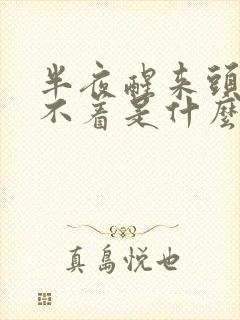 半夜醒来頭
不着是什麼
真島悦也